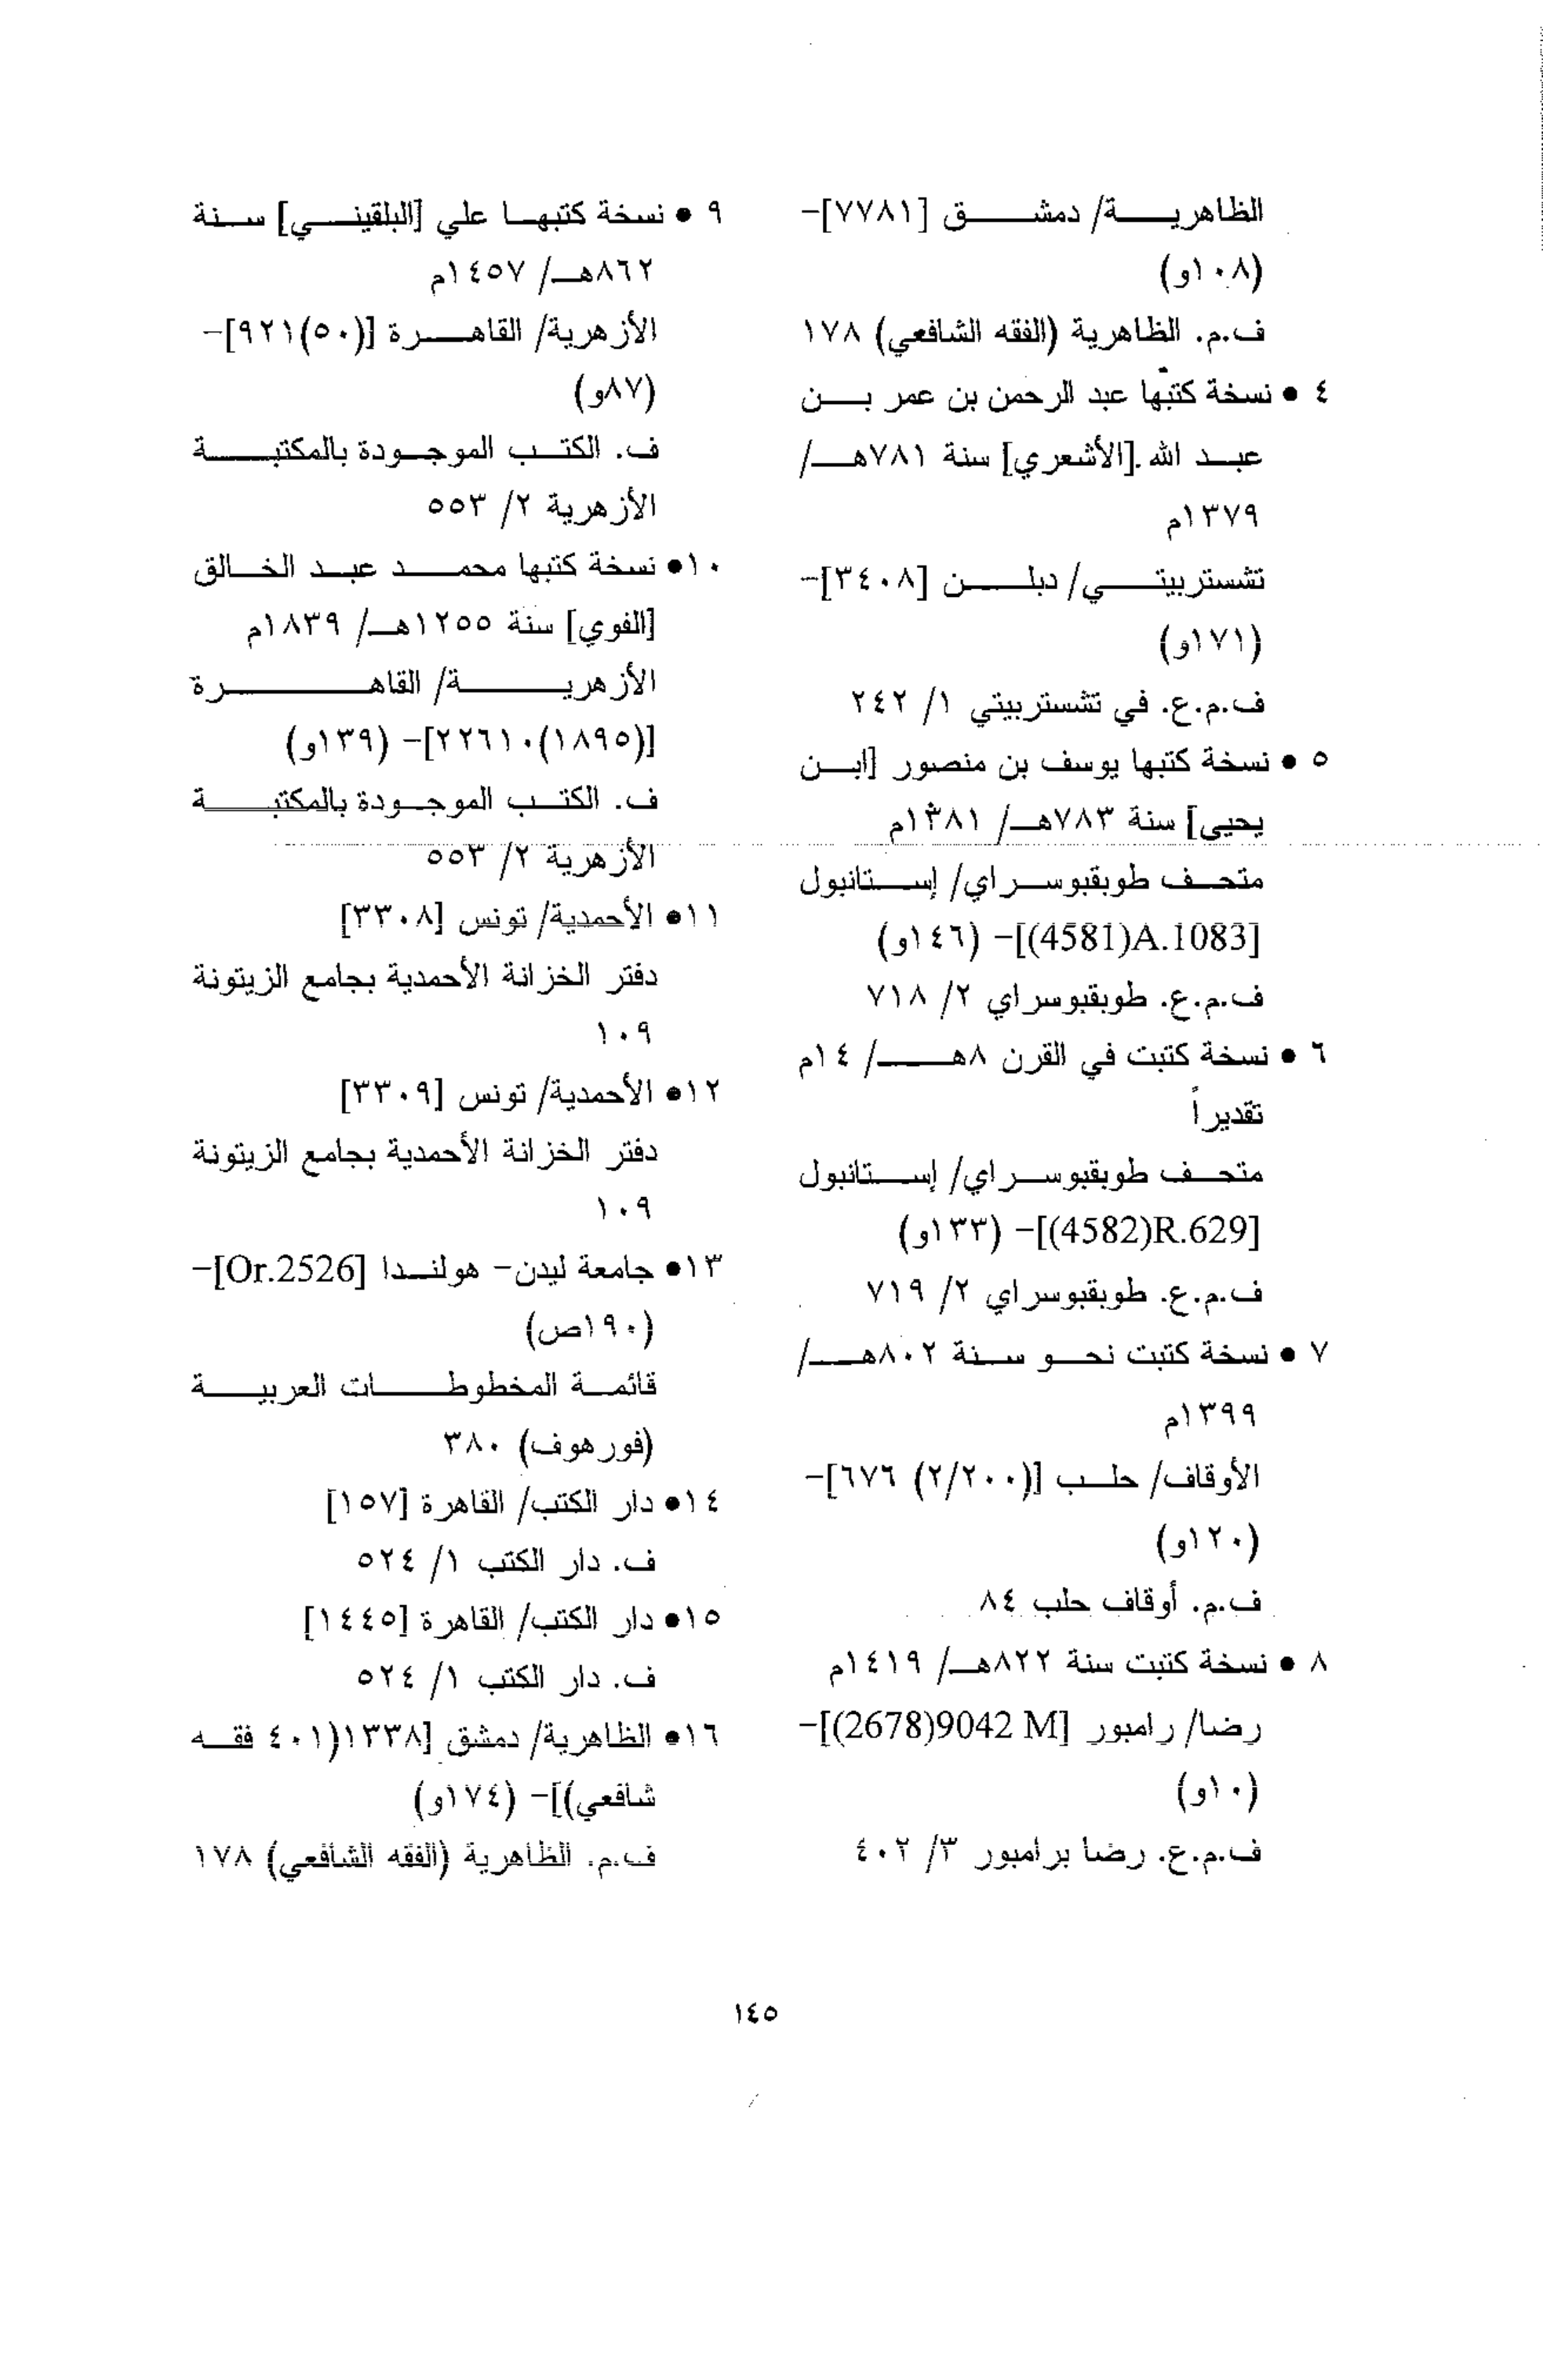 الظاهرية/ دمشق [٧٧٨١]-
(١٠٨و)
ف.م. الظاهرية (الفقه الشافعي) ١٧٨
٤ • نسخة كتبها عبد الرحمن بن عمر بن
عبد الله [الأشعري] سنة ٧٨١هـ/
١٣٧٩م
تشستربيتي/ دبلن [٣٤٠٨]-
(١٧١و)
ف.م.ع. في تشستربيتي ١/ ٢٤٢
٥ • نسخة كتبها يوسف بن منصور [ابن
يحيى] سنة ٧٨٣هـ/ ١٣٨١م
متحف طوبقبوسراي/ إستانبول
[A.1083(4581)]- (١٤٦و)
ف.م.ع. طوبقبوسراي ٢/ ٧١٨
٦ • نسخة كتبت في القرن ٨هـ/ ١٤م
تقديراً
متحف طوبقبوسراي/ إستانبول
[R.629(4582)]- (١٣٣و)
ف.م.ع. طوبقبوسراي ٢/ ٧١٩
٧ • نسخة كتبت نحو سنة ٨٠٢هـ/
١٣٩٩م
الأوقاف/ حلب [(٢/٢٠٠) ٦٧٦]-
(١٢٠و)
ف.م. أوقاف حلب ٨٤
٨ • نسخة كتبت سنة ٨٢٢هـ/ ١٤١٩م
رضا/ رامبور [9042 M(2678)]-
(١٠و)
ف.م.ع. رضا برامبور ٣/ ٤٠٢
٩ • نسخة كتبها علي [البلقيني] سنة
٨٦٢هـ/ ١٤٥٧م
الأزهرية/ القاهرة [(٥٠)٩٢١]-
(٨٧و)
ف. الكتب الموجودة بالمكتبة
الأزهرية ٢/ ٥٥٣
١٠• نسخة كتبها محمد عبد الخالق
[الفوي] سنة ١٢٥٥هـ/ ١٨٣٩م
الأزهرية/ القاهرة
[(١٨٩٥)٢٢٦١٠]- (١٣٩و)
ف. الكتب الموجودة بالمكتبة
الأزهرية ٢/ ٥٥٣
١١• الأحمدية/ تونس [٣٣٠٨]
دفتر الخزانة الأحمدية بجامع الزيتونة
١٠٩
١٢• الأحمدية/ تونس [٣٣٠٩]
دفتر الخزانة الأحمدية بجامع الزيتونة
١٠٩
١٣• جامعة ليدن- هولندا [Or.2526]-
(١٩٠ص)
قائمة المخطوطات العربية
(فورهوف) ٣٨٠
١٤• دار الكتب/ القاهرة [١٥٧]
ف. دار الكتب ١/ ٥٢٤
١٥• دار الكتب/ القاهرة [١٤٤٥]
ف. دار الكتب ١/ ٥٢٤
١٦• الظاهرية/ دمشق [١٣٣٨(٤٠١ فقه
شافعي)]- (١٧٤و)
ف.م. الظاهرية (الفقه الشافعي) ١٧٨
١٤٥